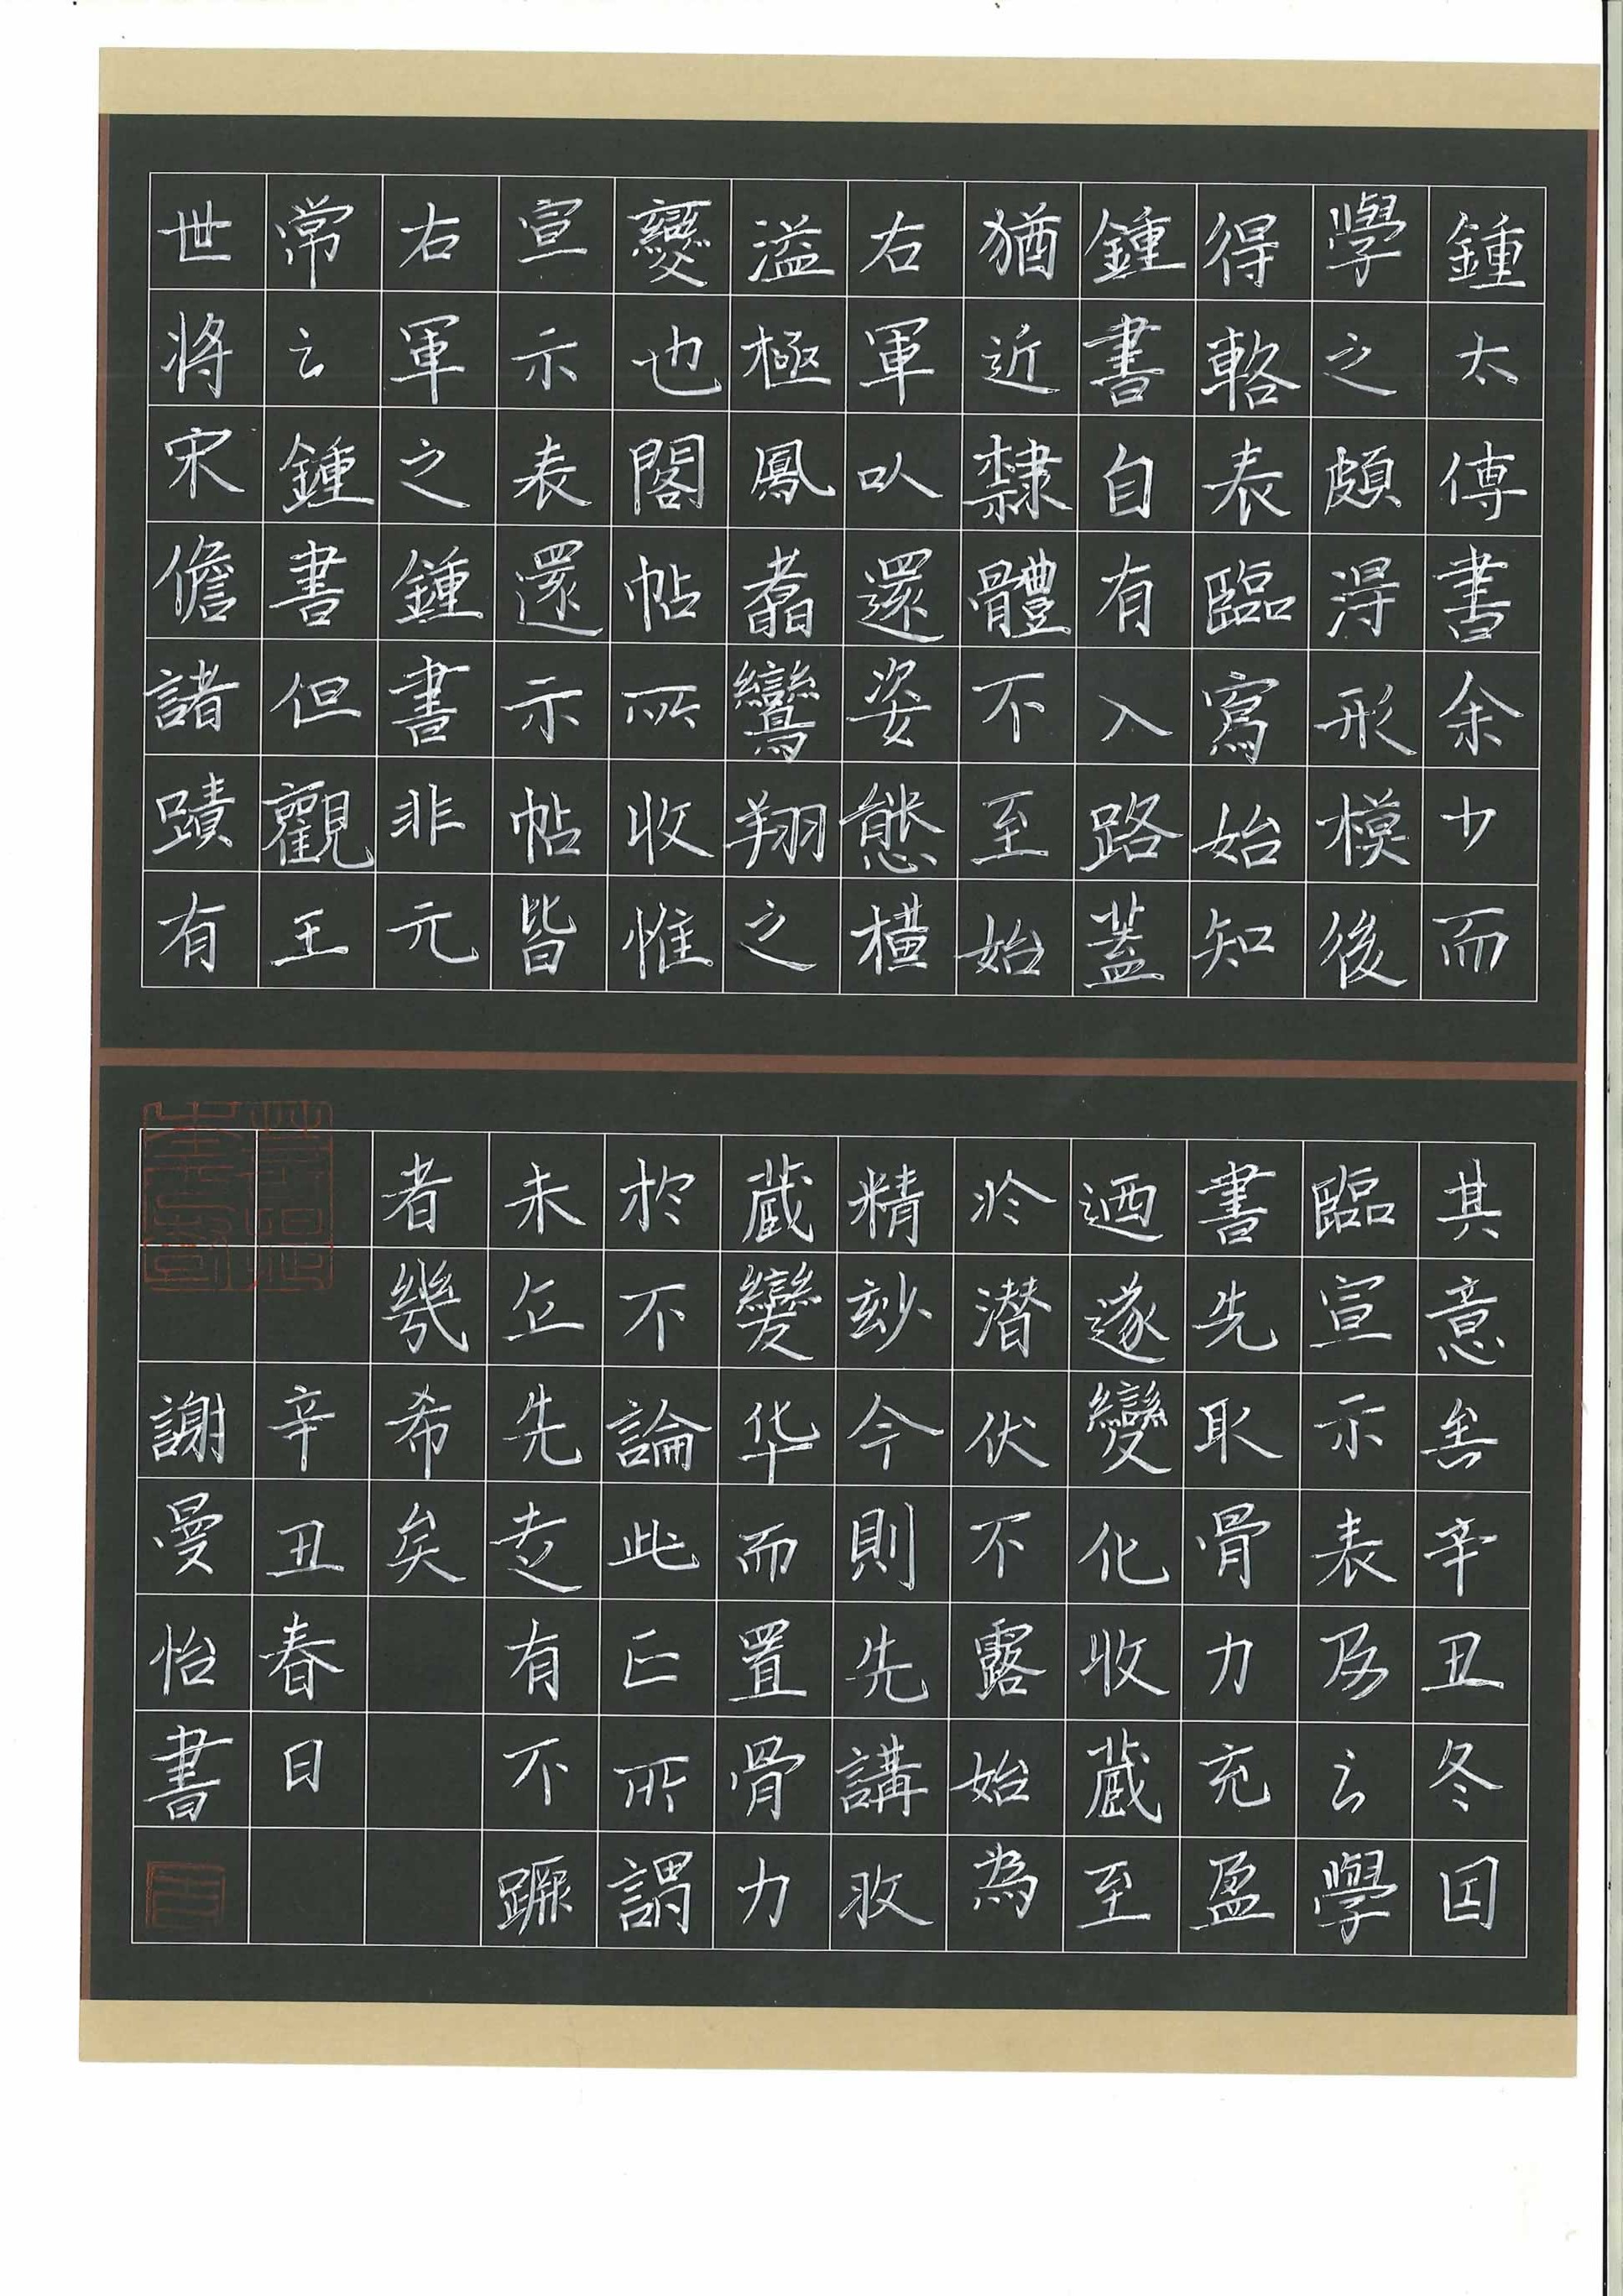 鍾太傅書余少而
學之頗淂形模後
得輅表臨寫始知
鍾書自有入路蓋
猶近隸體不至始
右軍㕥還姿態橫
溢極鳳翥鸞翔之
變也閣帖所收惟
宣示表還示帖皆
右軍之鍾書非元
常云鍾書但觀王
世將宋儋諸蹟有
其意矣辛丑冬因
臨宣示表及云學
書先取骨力充盈
遒遂變化收藏至
於潜伏不露始為
精玅今則先講收
藏變华而置骨力
於不論此正所謂
未立先走有不蹶
者幾希矣
辛丑春日
謝曼怡書